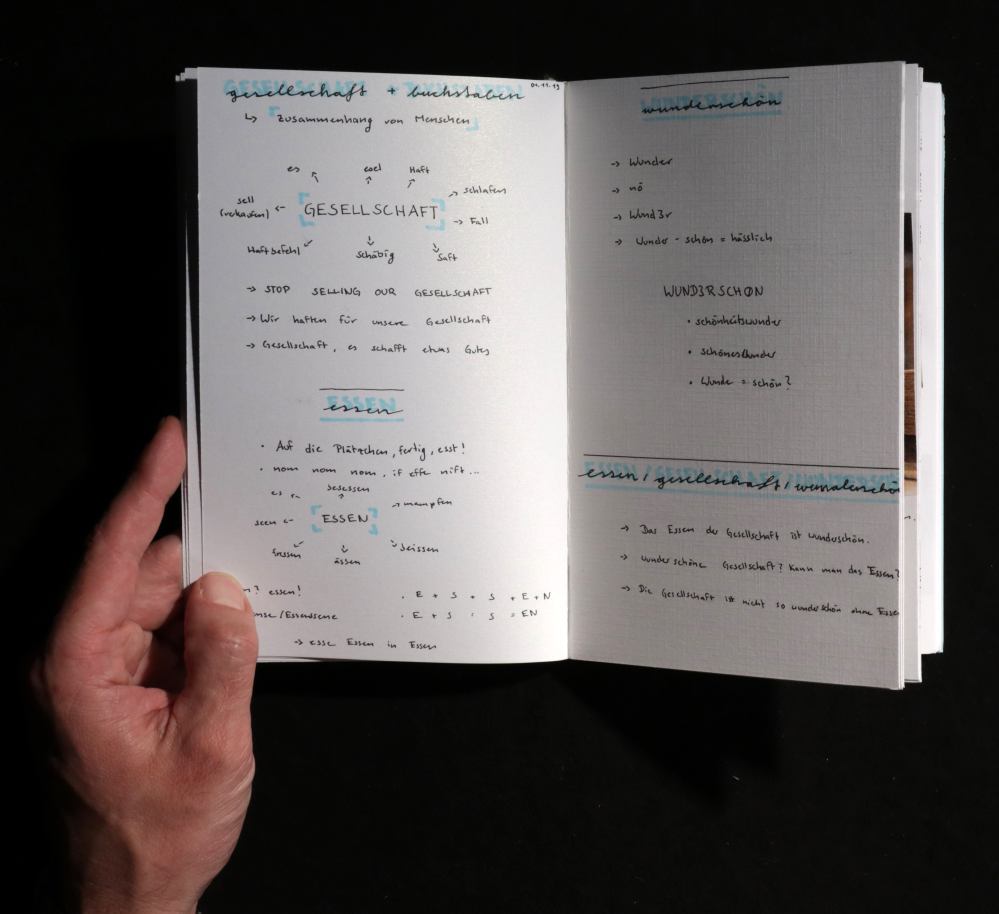 gesellschaft + buchstaben
01.11.19
↳ Zusammenhang von Menschen
es
Haft
sell
(verkaufen) ←
GESELLSCHAFT
→ schlafen
→ Fall
Haftbefehl
schäbig
Saft
→ STOP SELLING OUR GESELLSCHAFT
→ Wir haften für unsere Gesellschaft
→ Gesellschaft, es schafft etwas Gutes
ESSEN
essen
· Auf die Plätzchen, fertig, esst!
· nom nom nom, if effe nift...
es
besessen
→ mampfen
seen ←
ESSEN
fressen
ässen
beissen
? essen!
· E + S + S + E + N
nse/Essenszene
· E + S + S = EN
→ esse Essen in Essen
WUNDERSCHÖN
wunderschön
→ Wunder
→ nö
→ Wund3r
→ Wunder - schön = hässlich
WUND3RSCHØN
• schönheitswunder
•
• Wunde = schön?
ESSEN / GESELLSCHAFT / WUNDERSCHÖ
essen / gesellschaft / wunderschö
→ Das Essen der Gesellschaft ist wunderschön.
→ wunderschöne Gesellschaft? Kann man das Essen?
→ Die Gesellschaft ist nicht so wunderschön ohne Esse